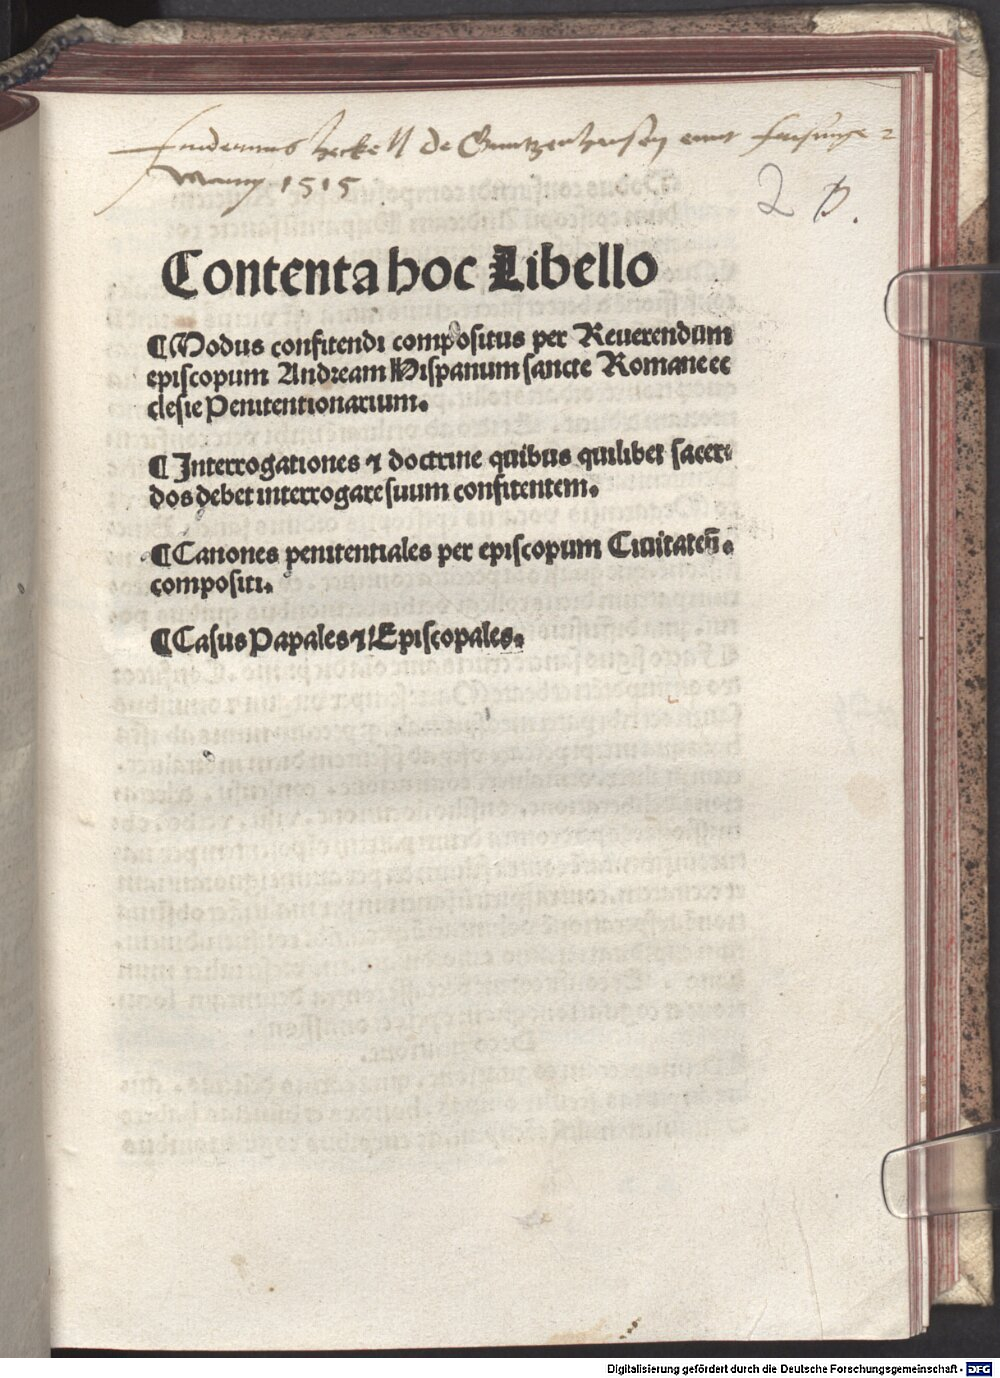 de Guntzenhausen emit
1515
2 D.
Contenta hoc Libello
¶ Modus confitendi compositus per Reuerendum
episcopum Andream Hispanum sancte Romane ec
clesie Penitentionarium.
¶ Interrogationes ⁊ doctrine quibus quilibet sacer⸗
dos debet interrogare suum confitentem.
¶ Canones penitentiales per episcopum Ciuitateñ.
compositi.
¶ Casus Papales ⁊ Episcopales.
Digitalisierung gefördert durch die Deutsche Forschungsgemeinschaft - DFG